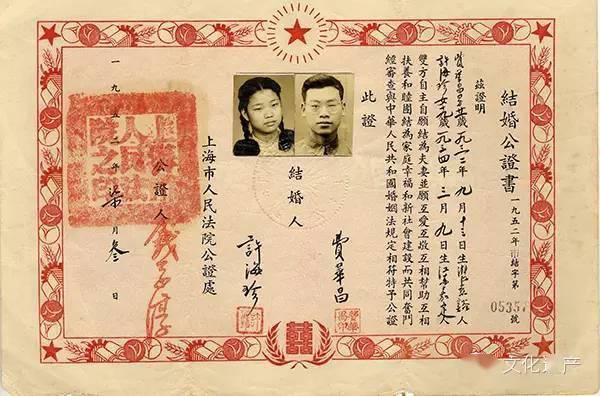 結婚公證書
一九五二年 結字第
05357號
茲證明
費華昌男 歲一九三二年九月十三日生浙江慈谿人
許海珍女 歲一九三四年三月九日生江蘇 人
雙方自主自願結為夫妻並願互愛互敬互相幫助互相
扶養和睦團結為家庭幸福和新社會建設而共同奮鬥
經審查與中華人民共和國婚姻法規定相符特予公證
此證
結婚人
費華昌
許海珍
上海市人民法院公證處
公證人
一九五二年柒月叁日
上海市人民法院之印
囍
文化遗产